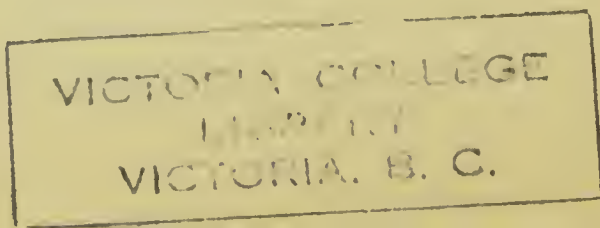 VICTORIA COLLEGE
LIBRARY
VICTORIA, B. C.